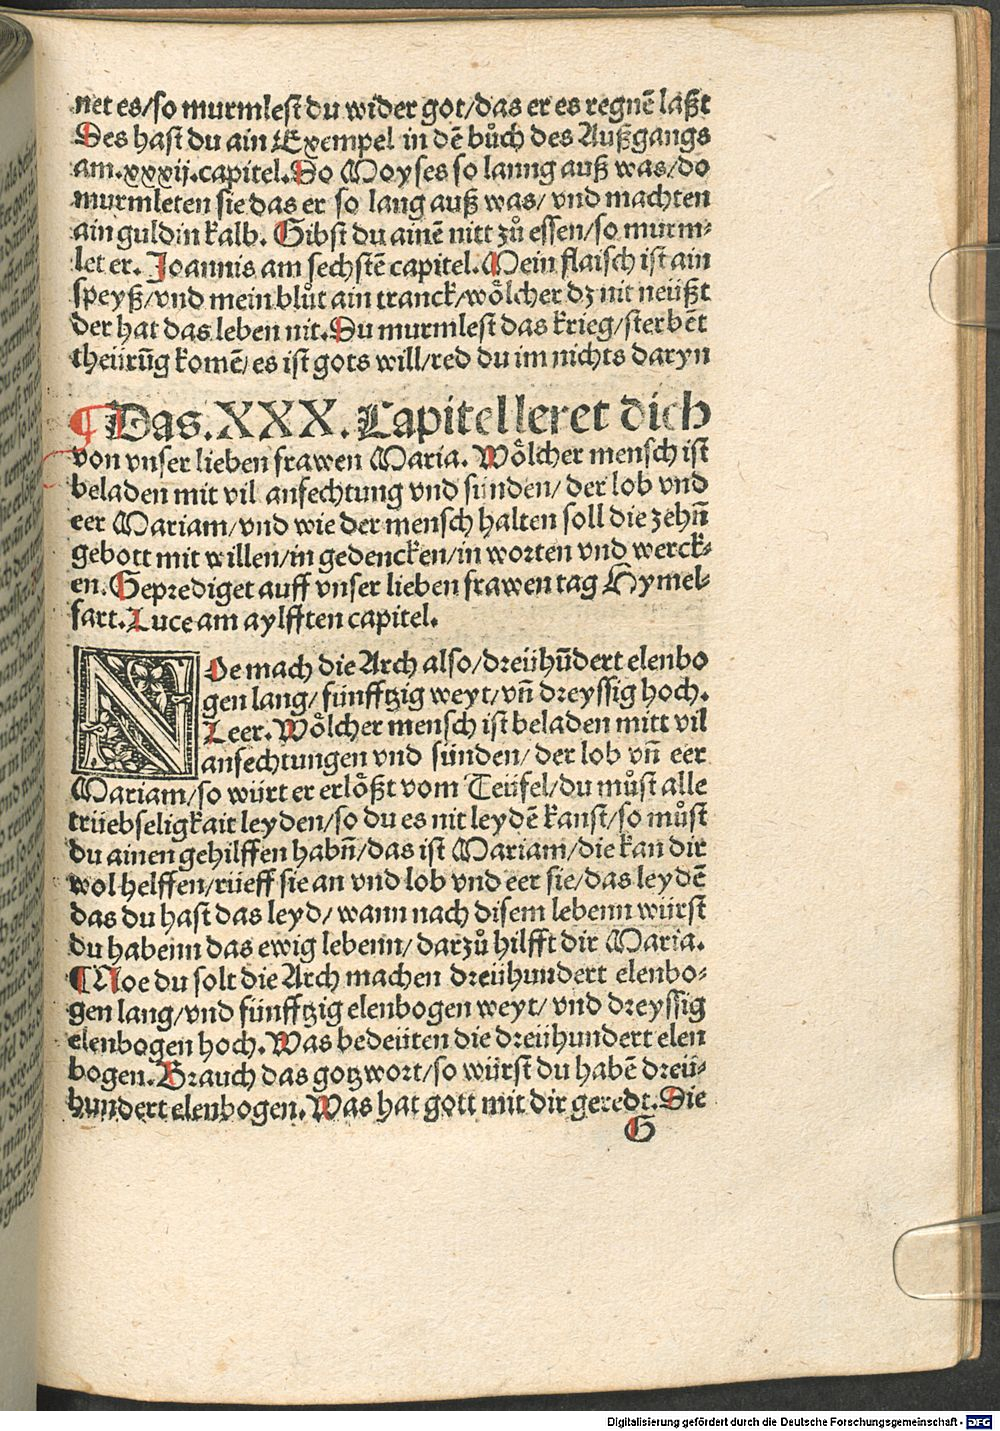 net es/so murmlest du wider got/das er es regnē laßt
Des hast du ain Exempel in dē bůch des Außgangs
am.xxxij.capitel.Do Moyses so lanng auß was/do
murmleten sie das er so lang auß was/ vnd machten
ain guldin kalb. Gibst du ainē nitt zů essen/so murm⸗
let er. Joannis am sechstē capitel.Mein flaisch ist ain
speyß/vnd mein blůt ain tranck/woͤlcher dz nit neüßt
der hat das leben nit.Du murmlest das krieg/sterbēt
theürūg komē/es ist gots will/red du im nichts daryn
¶Das.XXX.Capitel leret dich
von vnser lieben frawen Maria. Woͤlcher mensch ist
beladen mit vil anfechtung vnd sünden/ der lob vnd
eer Mariam/vnd wie der mensch halten soll die zehn̄
gebott mit willen/in gedencken/in worten vnd werck⸗
en.Geprediget auff vnser lieben frawen tag Hymel⸗
fart.Luce am aylfften capitel.
NOe mach die Arch also/dreühūdert elenbo
gen lang/ fünfftzig weyt/vn̄ dreyssig hoch.
Leer.Woͤlcher mensch ist beladen mitt vil
anfechtungen vnd sünden/ der lob vn̄ eer
Mariam/so würt er erloͤßt vom Teüfel/du můst alle
trüebseligkait leyden/so du es nit leydē kanst/so můst
du ainen gehilffen habn̄/das ist Mariam/die kan dir
wol helffen/rüeff sie an vnd lob vnd eer sie/das leydē
das du hast das leyd/ wann nach disem lebenn würst
du habenn das ewig lebenn/ darzů hilfft dir Maria.
¶Noe du solt die Arch machen dreühundert elenbo⸗
gen lang/vnd fünfftzig elenbogen weyt/ vnd dreyssig
elenbogen hoch.Was bedeüten die dreühundert elen
bogen.Brauch das gotzwort/so würst du habē dreü⸗
hundert elenbogen.Was hat gott mit dir geredt.Die
G
Digitalisierung gefördert durch die Deutsche Forschungsgemeinschaft - DFG